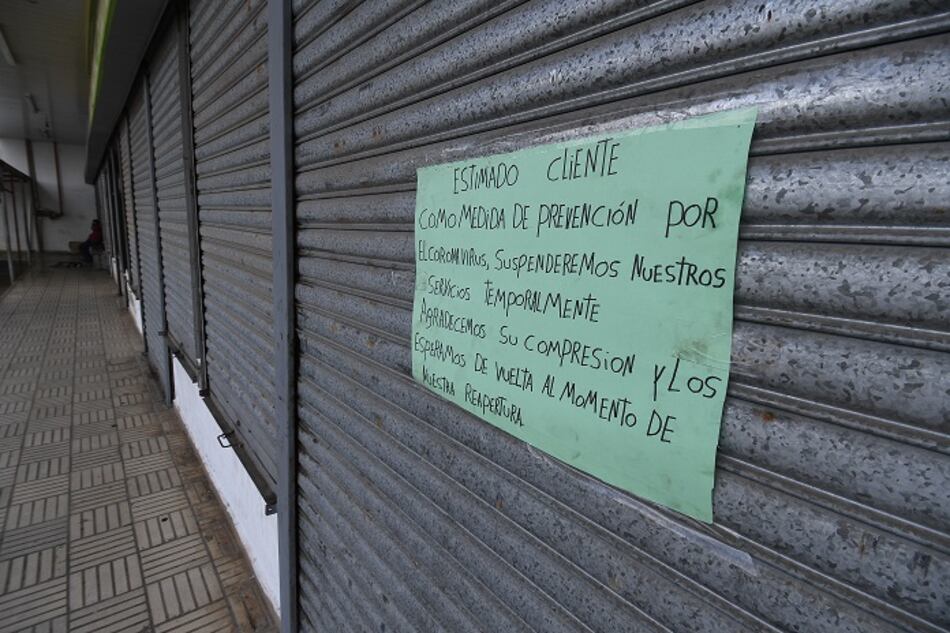 ESTIMADO CLIENTE
COMO MEDIDA DE PREVENCIÓN POR
EL CORONAVIRUS, SUSPENDEREMOS NUESTROS
SERVICIOS TEMPORALMENTE
AGRADECEMOS SU COMPRESION Y LOS
ESPERAMOS DE VUELTA AL MOMENTO DE
NUESTRA REAPERTURA.